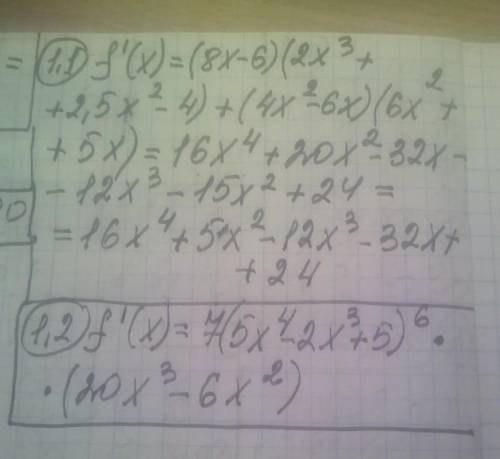 = 1,1 f'(x)=(8x-6)(2x³+
+2,5x²-4)+(4x²-6x)(6x²+
+5x)=16x⁴+20x²-32x-
-12x³-15x²+24=
=16x⁴+5x²-12x³-32x+
+24
1,2 f'(x)=7(5x⁴-2x³+5)⁶·
·(20x³-6x²)